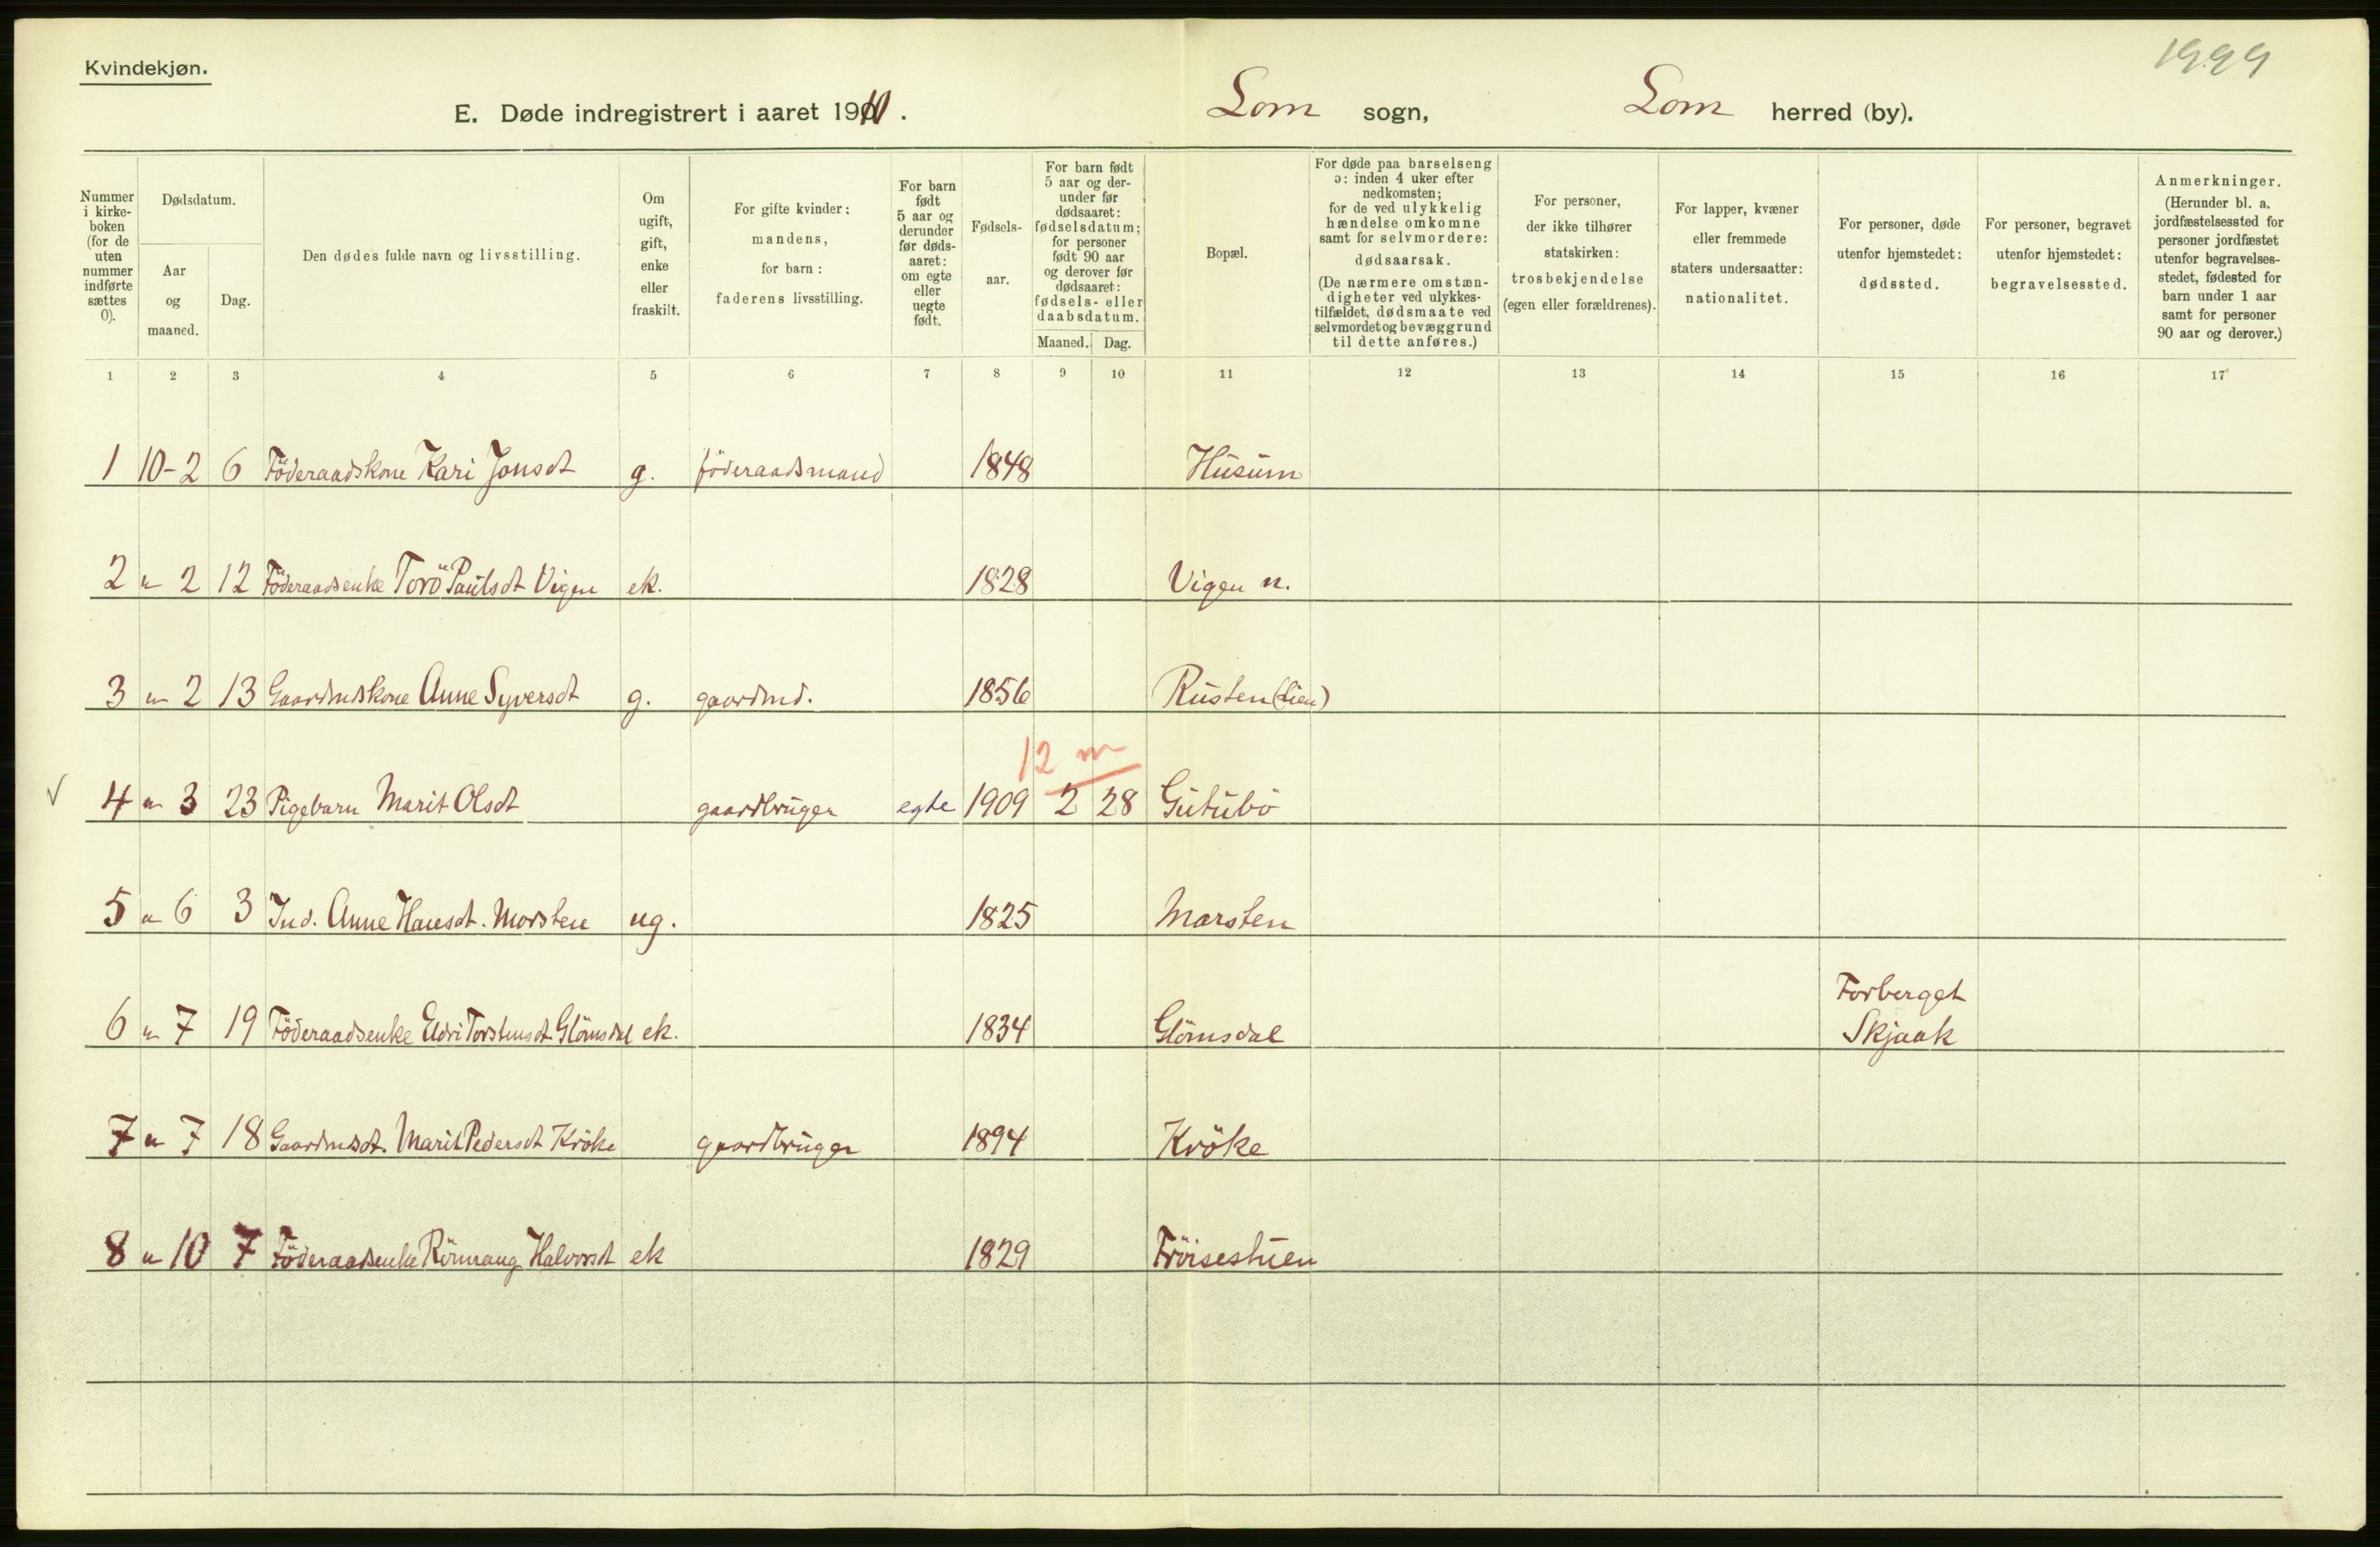 Kvindekjøn.
1999
E. Døde indregistrert i aaret 1910. Lom sogn, Lom herred (by).
Nummer i kirke-boken (for de uten nummer indførte sættes 0).
Dødsdatum.
Aar og maaned.
Dag.
Den dødes fulde navn og livsstilling.
Om ugift, gift, enke eller fraskilt.
For gifte kvinder: mandens, for barn: faderens livsstilling.
For barn født 5 aar og derunder før døds-aaret: om egte eller uegte født.
Fødsels-aar.
For barn født 5 aar og der-under før dødsaaret: fødselsdatum; for personer født 90 aar og derover før dødsaaret: fødsels- eller daabsdatum.
Maaned. Dag.
Bopæl.
For døde paa barselseng ɔ: inden 4 uker efter nedkomsten; for de ved ulykkelig hændelse omkomne samt for selvmordere: dødsaarsak. (De nærmere omstæn-digheter ved ulykkes-tilfældet, dødsmaate ved selvmordet og bevæggrund til dette anføres.)
For personer, der ikke tilhører statskirken: trosbekjendelse (egen eller forældrenes).
For lapper, kvæner eller fremmede staters undersaatter: nationalitet.
For personer, døde utenfor hjemstedet: dødssted.
For personer, begravet utenfor hjemstedet: begravelsessted.
Anmerkninger. (Herunder bl. a. jordfæstelsessted for personer jordfæstet utenfor begravelses-stedet, fødested for barn under 1 aar samt for personer 90 aar og derover.)
1 2 3 4 5 6 7 8 9 10 11 12 13 14 15 16 17
1 10-2 6 Föderaadskone Kari Jonsdt g. föderaadsmand 1848 Husum
2 " 2 12 Föderaadsenke Torö Paulsdt Vigen ek. 1828 Vigen n.
3 " 2 13 Gaardmdskone Anne Syversdt g. gaardmd. 1856 Rusten (Lien)
12 m
4 " 3 23 Pigebarn Marit Olsdt gaardbruger egte 1909 2 28 Gutubö
5 " 6 3 Ind. Anne Hansdt. Marsten ug. 1825 Marsten
6 " 7 19 Föderaadsenke Eldri Torstensdt Glömsdal ek. 1834 Glömsdal Forberget Skjaak
7 " 7 18 Gaardmdsdt. Marit Pedersdt Kröke gaardbruger 1894 Kröke
8 " 10 7 Föderaadsenke Rönnaug Halvorsdt ek 1829 Fröisestuen